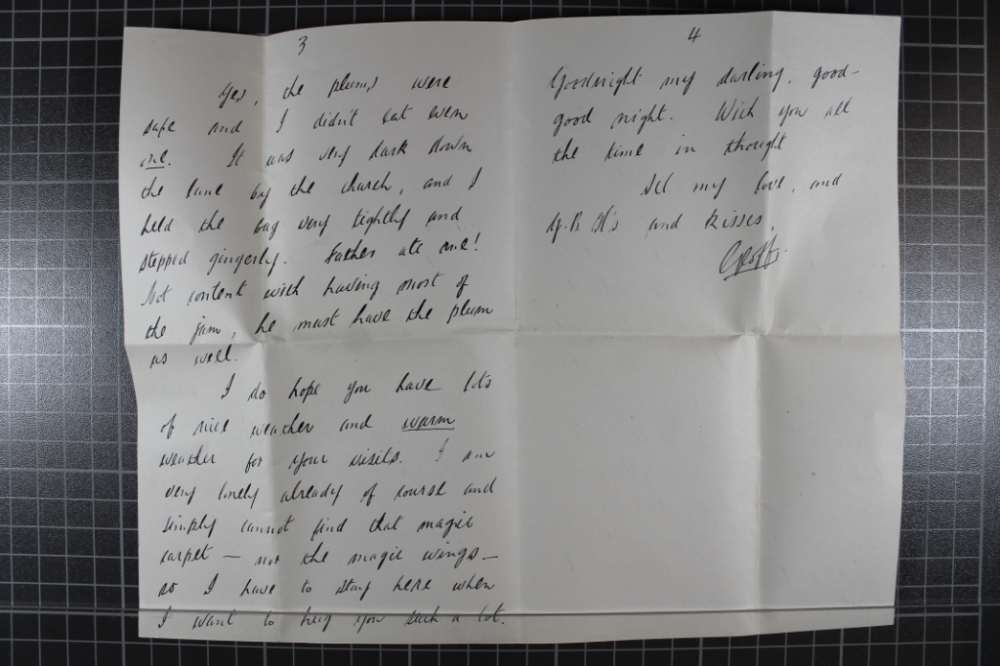 3
Yes, the plums were
safe and I didn't eat even
one. It was very dark down
the lane by the church, and I
held the bag very tightly and
stepped gingerly. Father ate one!
Not content with having most of
the jam, he must have the plum
as well.
I do hope you have lots
of nice weather and warm
weather for your visits. I am
very lonely already of course and
simply cannot find that magic
carpet — nor the magic wings —
so I have to stay here when
I want to hug you such a lot.
4
Goodnight my darling, good-
good night. With you all
the time in thought
All my love, and
and kisses.
Geoff.